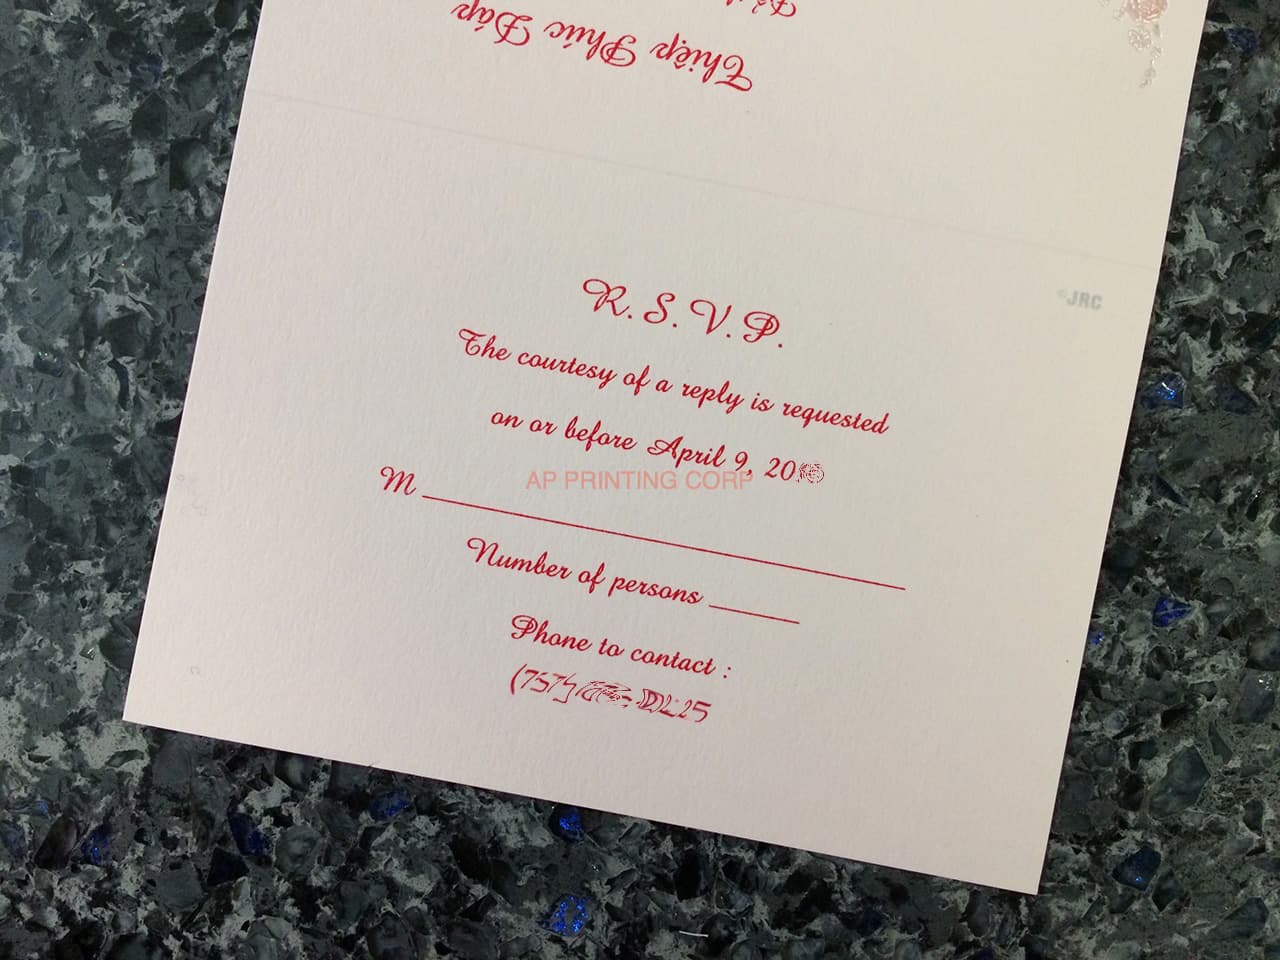 Thiệp Phúc Đáp
©JRC
R. S. V. P.
The courtesy of a reply is requested
on or before April 9,
AP PRINTING CORP
M
Number of persons
Phone to contact :